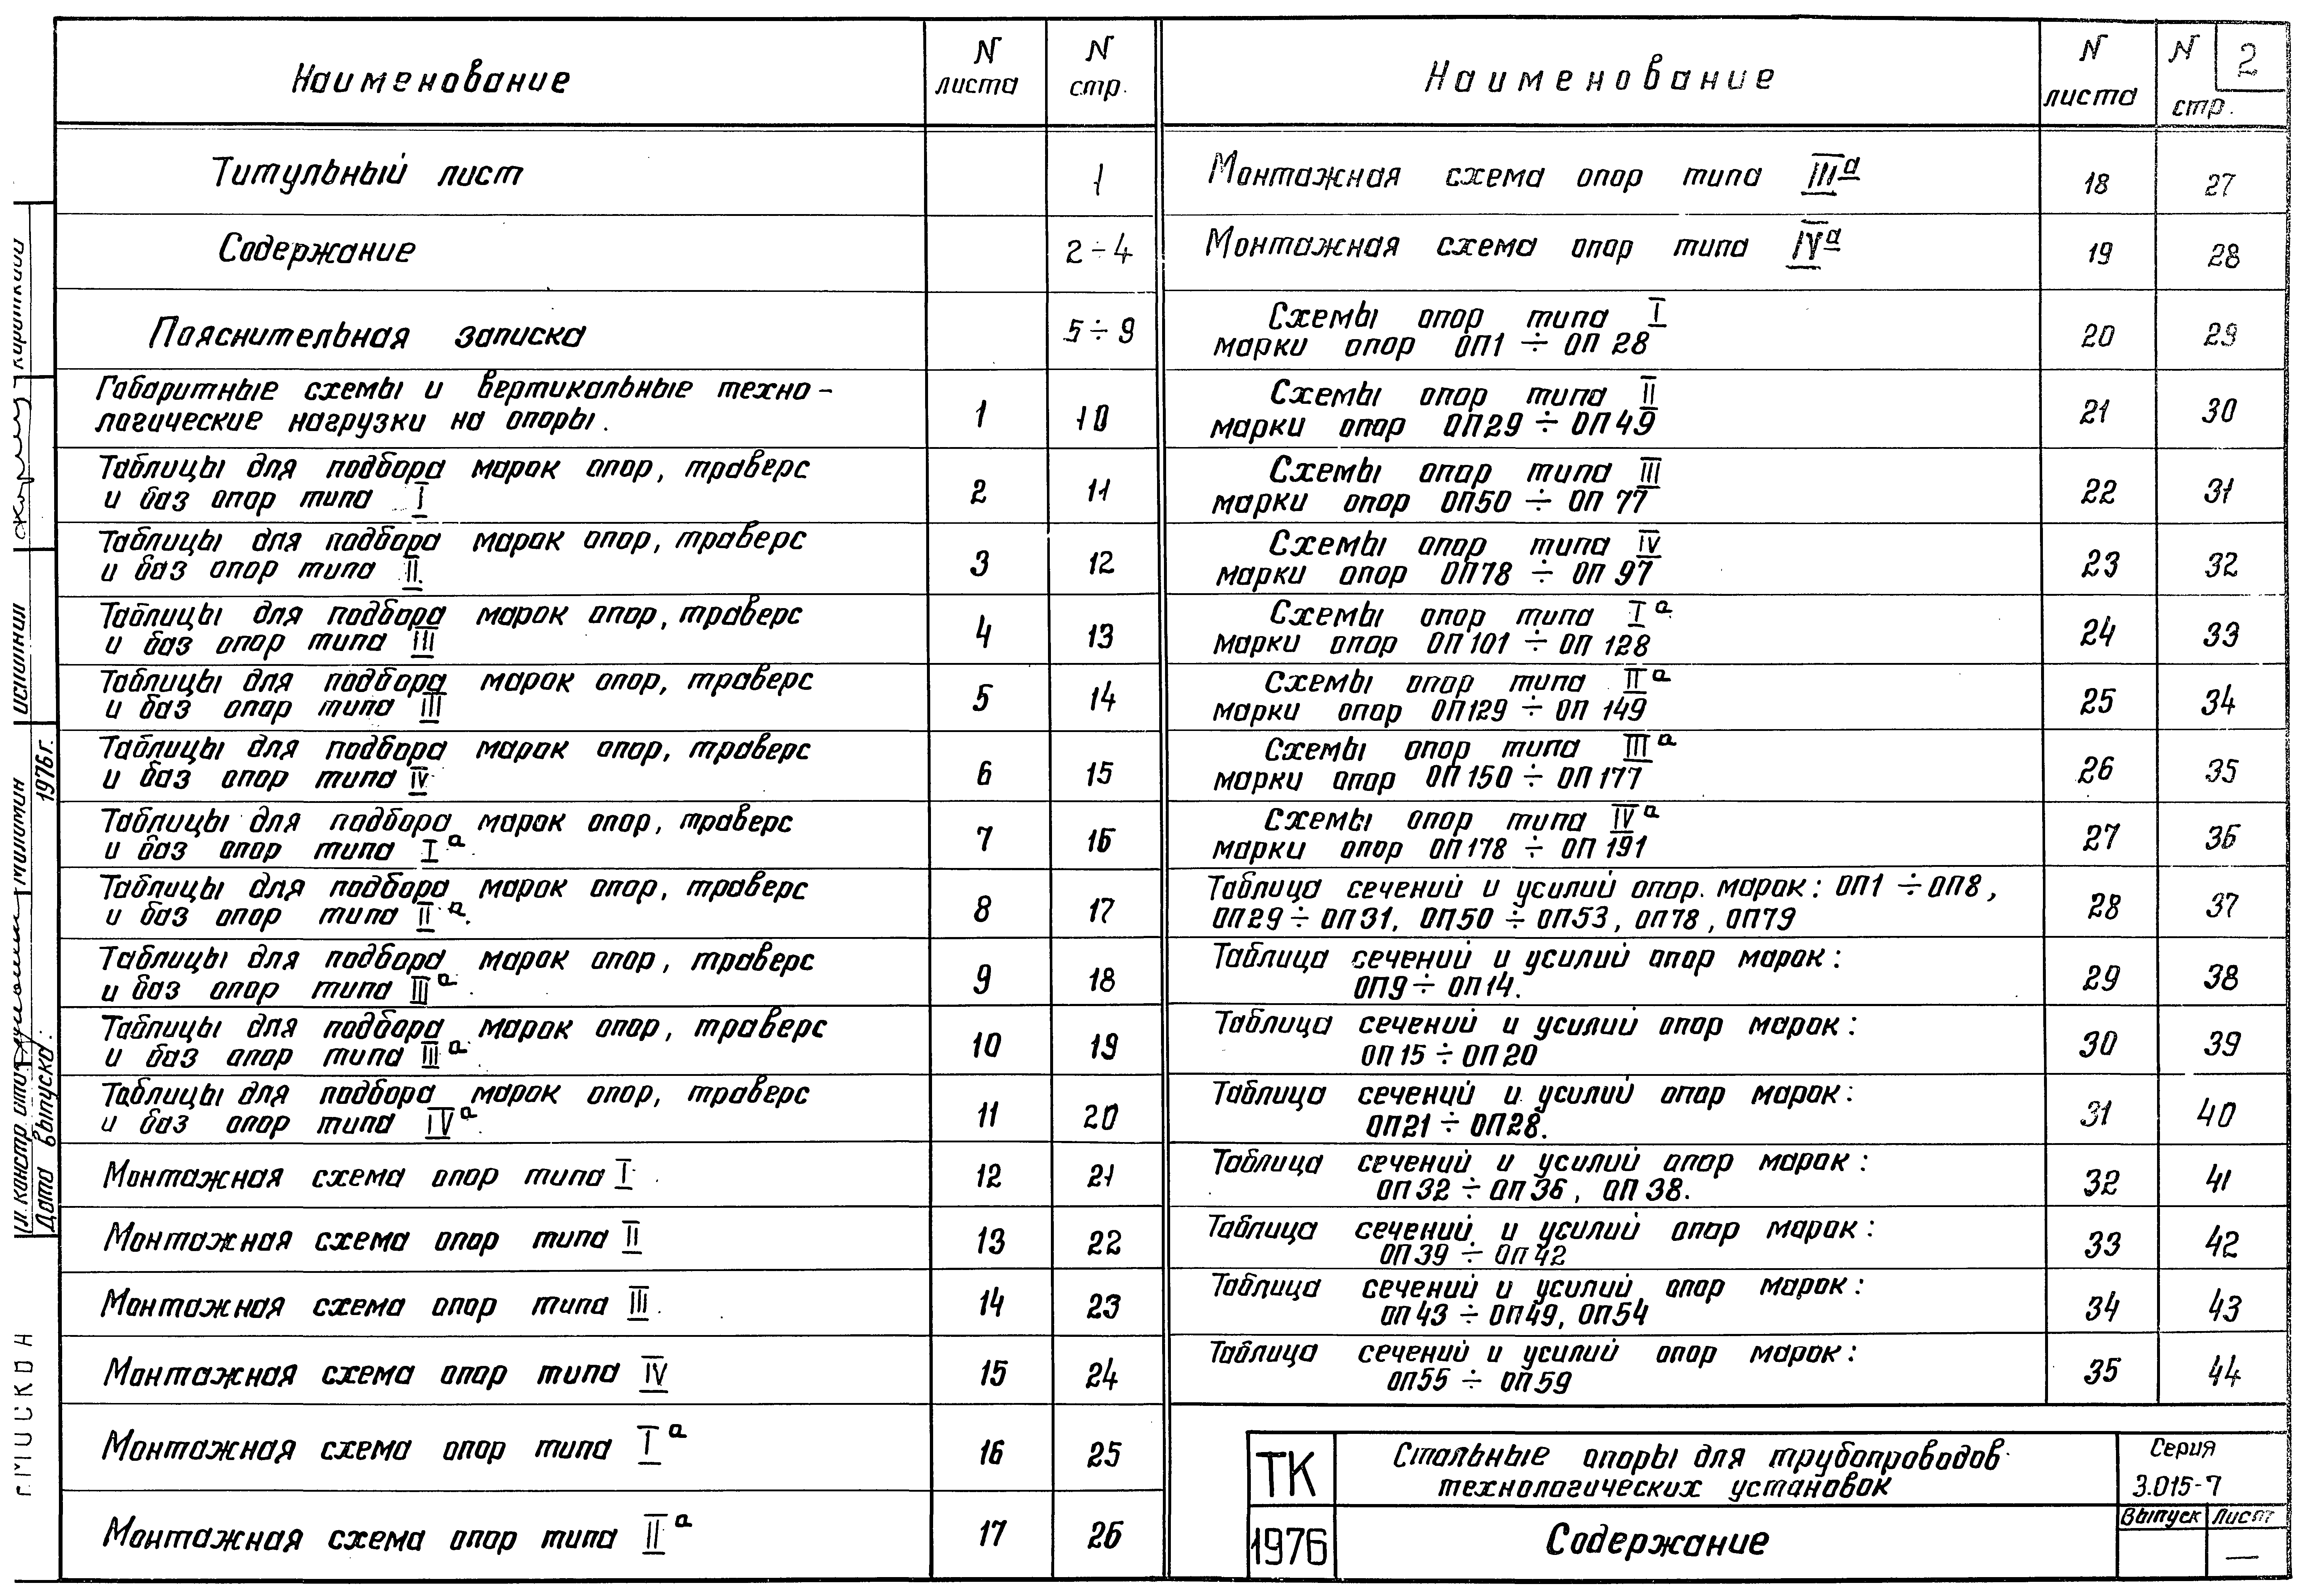 Наименование
N листа
N стр.
Титульный лист
1
Содержание
2÷4
Пояснительная записка
5÷9
Габаритные схемы и вертикальные техно-
логические нагрузки на опоры.
1
10
Таблицы для подбора марок опор, траверс
и баз опор типа I
2
11
Таблицы для подбора марок опор, траверс
и баз опор типа II
3
12
Таблицы для подбора марок опор, траверс
и баз опор типа III
4
13
Таблицы для подбора марок опор, траверс
и баз опор типа III
5
14
Таблицы для подбора марок опор, траверс
и баз опор типа IV
6
15
Таблицы для подбора марок опор, траверс
и баз опор типа Iа
7
16
Таблицы для подбора марок опор, траверс
и баз опор типа IIа
8
17
Таблицы для подбора марок опор, траверс
и баз опор типа IIIа
9
18
Таблицы для подбора марок опор, траверс
и баз опор типа IIIа
10
19
Таблицы для подбора марок опор, траверс
и баз опор типа IVа
11
20
Монтажная схема опор типа I
12
21
Монтажная схема опор типа II
13
22
Монтажная схема опор типа III
14
23
Монтажная схема опор типа IV
15
24
Монтажная схема опор типа Iа
16
25
Монтажная схема опор типа IIа
17
26
Наименование
N листа
N стр.
2
Монтажная схема опор типа IIIа
18
27
Монтажная схема опор типа IVа
19
28
Схемы опор типа I
марки опор ОП1 ÷ ОП 28
20
29
Схемы опор типа II
марки опор ОП29 ÷ ОП49
21
30
Схемы опор типа III
марки опор ОП50 ÷ ОП 77
22
31
Схемы опор типа IV
марки опор ОП78 ÷ ОП 97
23
32
Схемы опор типа Iа
марки опор ОП101 ÷ ОП 128
24
33
Схемы опор типа IIа
марки опор ОП129 ÷ ОП 149
25
34
Схемы опор типа IIIа
марки опор ОП150 ÷ ОП177
26
35
Схемы опор типа IVа
марки опор ОП178 ÷ ОП 191
27
36
Таблица сечений и усилий опор. марок: ОП1 ÷ ОП8,
ОП29 ÷ ОП31, ОП50 ÷ ОП53, ОП78, ОП79
28
37
Таблица сечений и усилий опор марок:
ОП9 ÷ ОП14.
29
38
Таблица сечений и усилий опор марок:
ОП15 ÷ ОП20
30
39
Таблица сечений и усилий опор марок:
ОП21 ÷ ОП28.
31
40
Таблица сечений и усилий опор марок:
ОП32 ÷ ОП36, ОП38.
32
41
Таблица сечений и усилий опор марок:
ОП39 ÷ ОП42
33
42
Таблица сечений и усилий опор марок:
ОП43 ÷ ОП49, ОП54
34
43
Таблица сечений и усилий опор марок:
ОП55 ÷ ОП59
35
44
ТК
1976
Стальные опоры для трубопроводов
технологических установок
Содержание
Серия
3.015-7
Выпуск
Лист
—
Дата выпуска:
1976г.